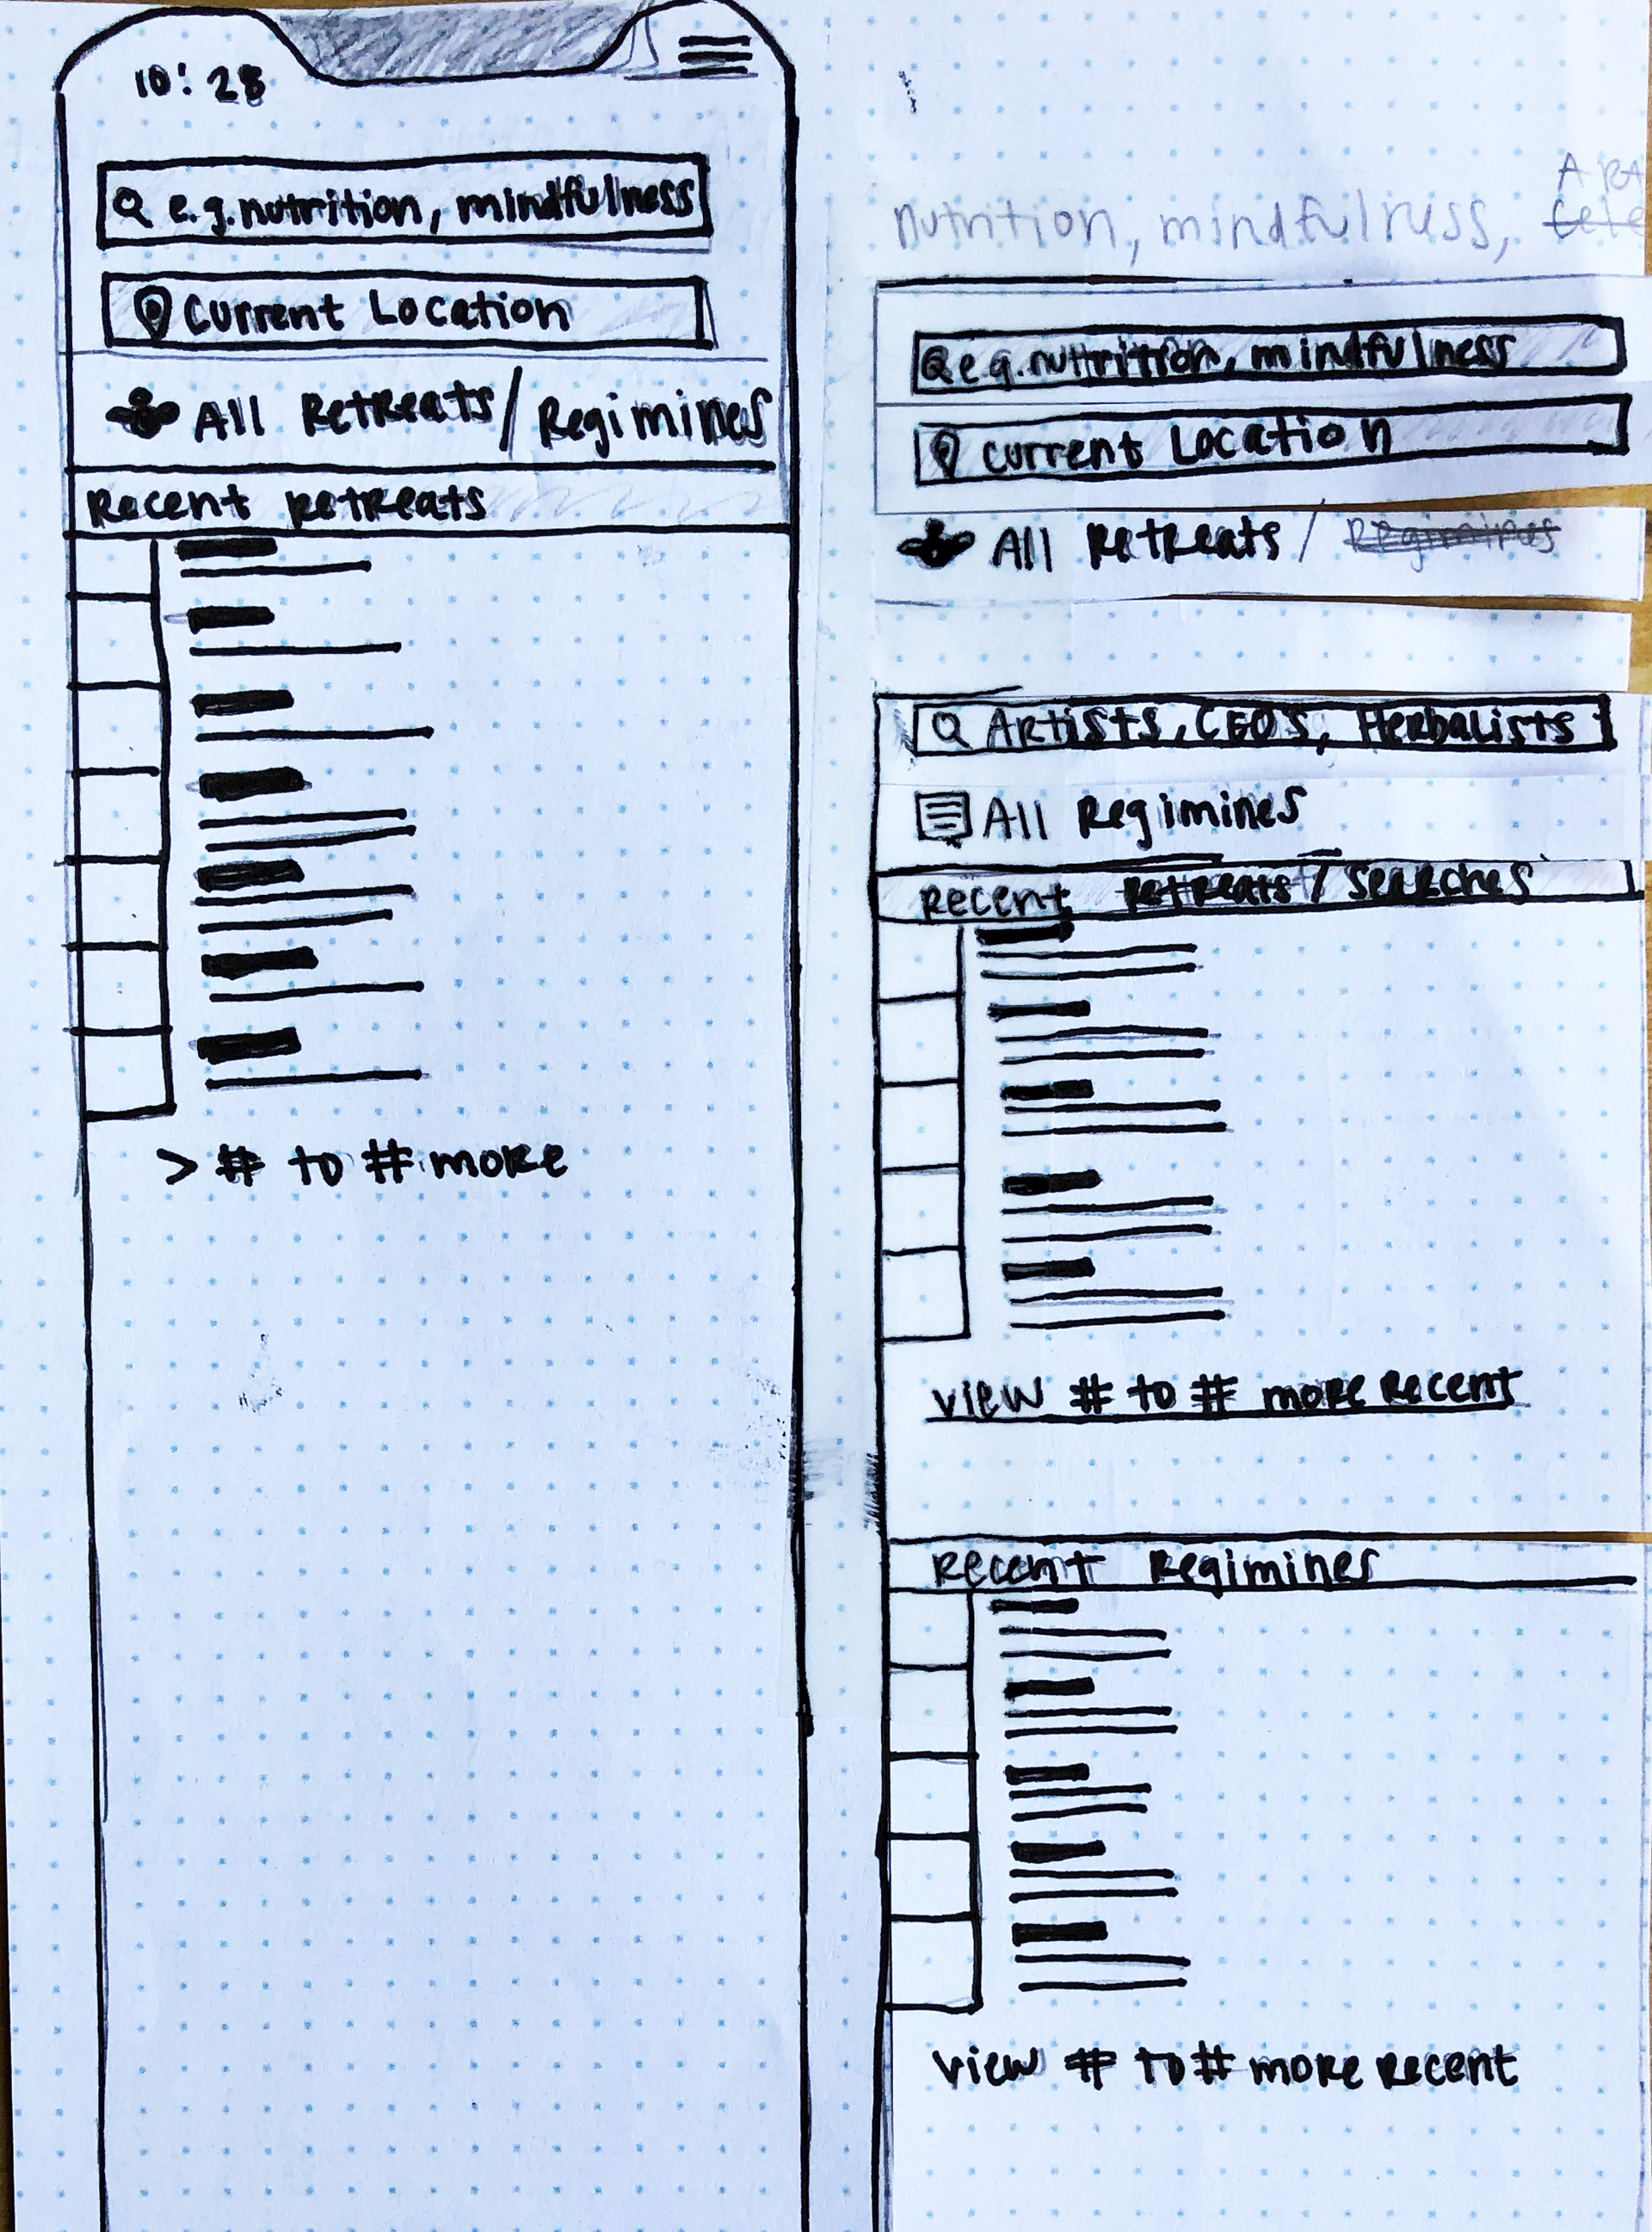 10:28
e.g. nutrition, mindfulness
Current Location
All Retreats / Regimines
Recent Retreats
> # to # more
nutrition, mindfulness,
e.g. nuttrition, mindfulness
Current Location
All Retreats / Regimines
Artists, CEOS, Herbalists
All Regimines
Recent Retreats / Searches
View # to # more Recent
Recent Regimines
View # to # more Recent